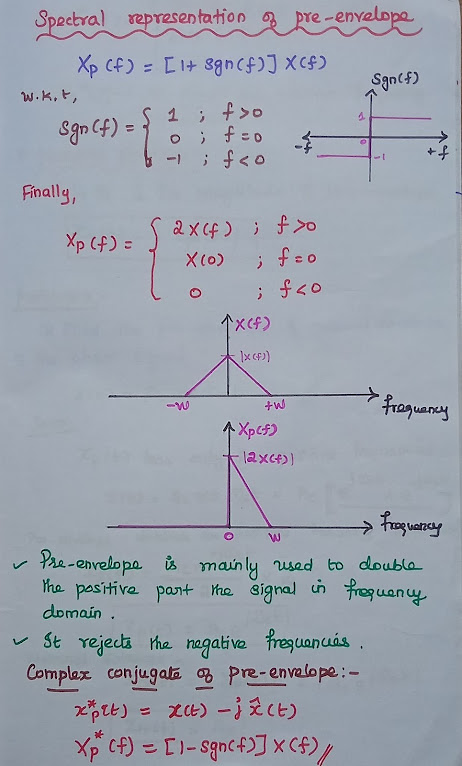 Spectral representation of pre-envelope
Xp (f) = [1+ sgn(f)] X(f)
w.k.t,
Sgn(f) = { 1 ; f>0
0 ; f=0
-1 ; f<0
Sgn(f)
1
0
-f
-1
+f
Finally,
Xp (f) = { 2X(f) ; f>0
X(0) ; f=0
0 ; f<0
X(f)
|X(f)|
-W
+W
frequency
Xp(f)
|2X(f)|
0
W
frequency
✓ Pre-envelope is mainly used to double
the positive part the signal in frequency
domain.
✓ It rejects the negative frequencies.
Complex conjugate of pre-envelope:-
x*p(t) = x(t) - j x̂(t)
Xp*(f) = [1-sgn(f)] X(f)//